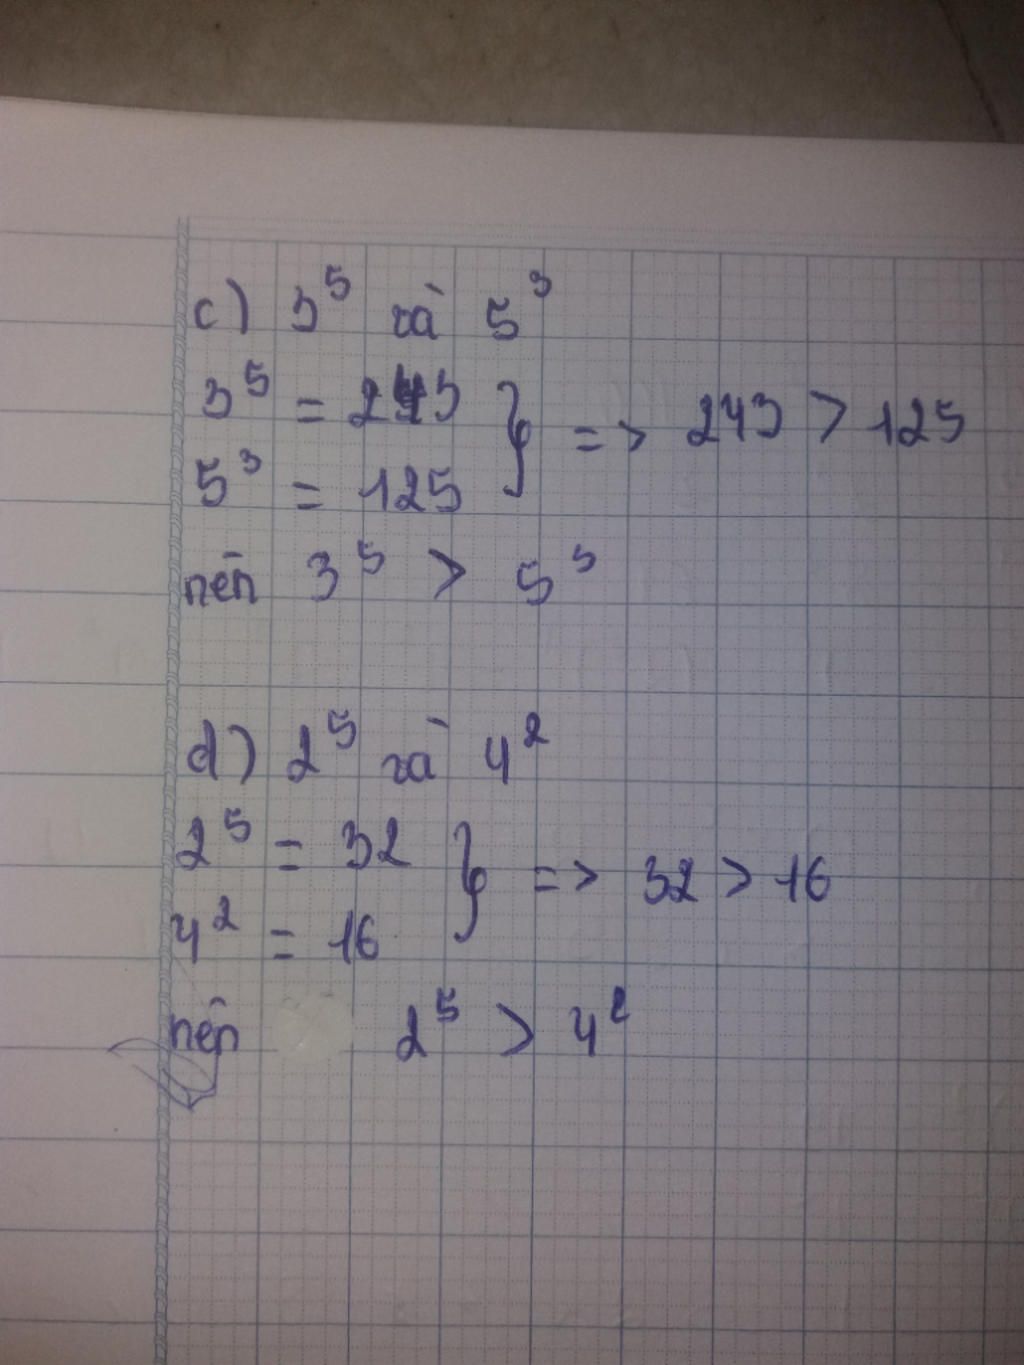 c) 3⁵ và 5³
3⁵ = 243 } => 243 > 125
5³ = 125
nên 3⁵ > 5³
d) 2⁵ và 4²
2⁵ = 32 } => 32 > 16
4² = 16
nên 2⁵ > 4²